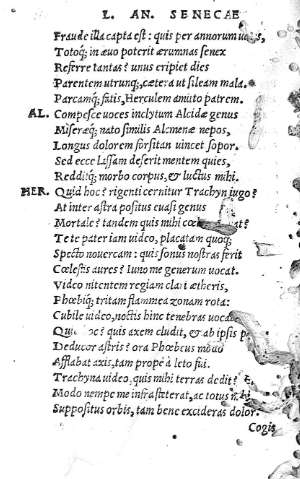 L. AN. SENECAE
Fraude illa capta est: quis per annorum
Totoq; in æuo poterit ærumnas senex
Referre tantas? unus eripiet dies
Parentem utrunq;, cætera ut sileam mala.
Parcamq; fatis, Herculem amitto patrem.
AL. Compesce uoces inclytum Alcidæ genus
Miseræq; nato similis Alcmenæ nepos,
Longus dolorem forsitan uincet sopor.
Sed ecce lassam deserit mentem quies,
Redditq; morbo corpus, & luctus mihi.
HER. Quid hoc? rigenti cernitur Trachyn iugo?
At inter astra positus euasi genus
Mortale? tandem quis mihi
Te te pater iam uideo, placatam quoq;
Specto nouercam: quis sonus nostras ferit
Cœlestis aures? Iuno me generum uocat.
Video nitentem regiam clari ætheris,
Phœbiq; tritam flammea zonam rota:
Cubile uideo, noctis hinc tenebras
hoc? quis axem cludit, & ab ipsis
Deducor astris? ora Phœbeus modo
Afflabat axis, tam prope à leto fui.
Trachyna uideo, quis mihi terras dedit?
Modo nempe me infra steterat, ac totus
Suppositus orbis, tam bene excideras dolor.
Cogis